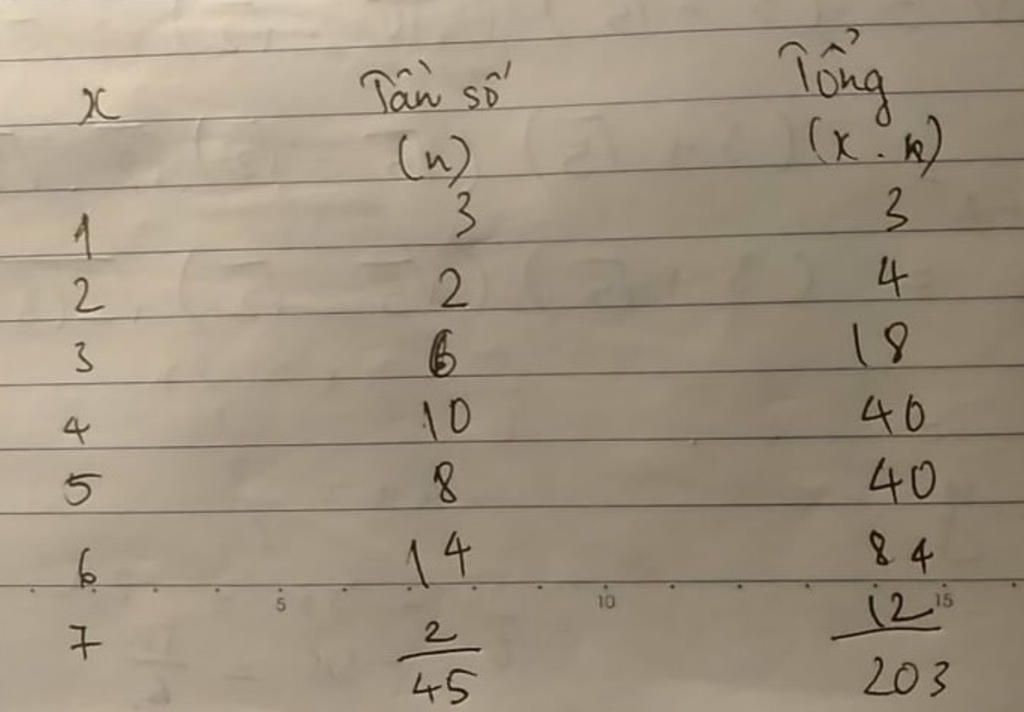 x Tần số Tổng
(n) (x . n)
1 3 3
2 2 4
3 6 18
4 10 40
5 8 40
6 14 84
5 10 15
7 2 12
45 203